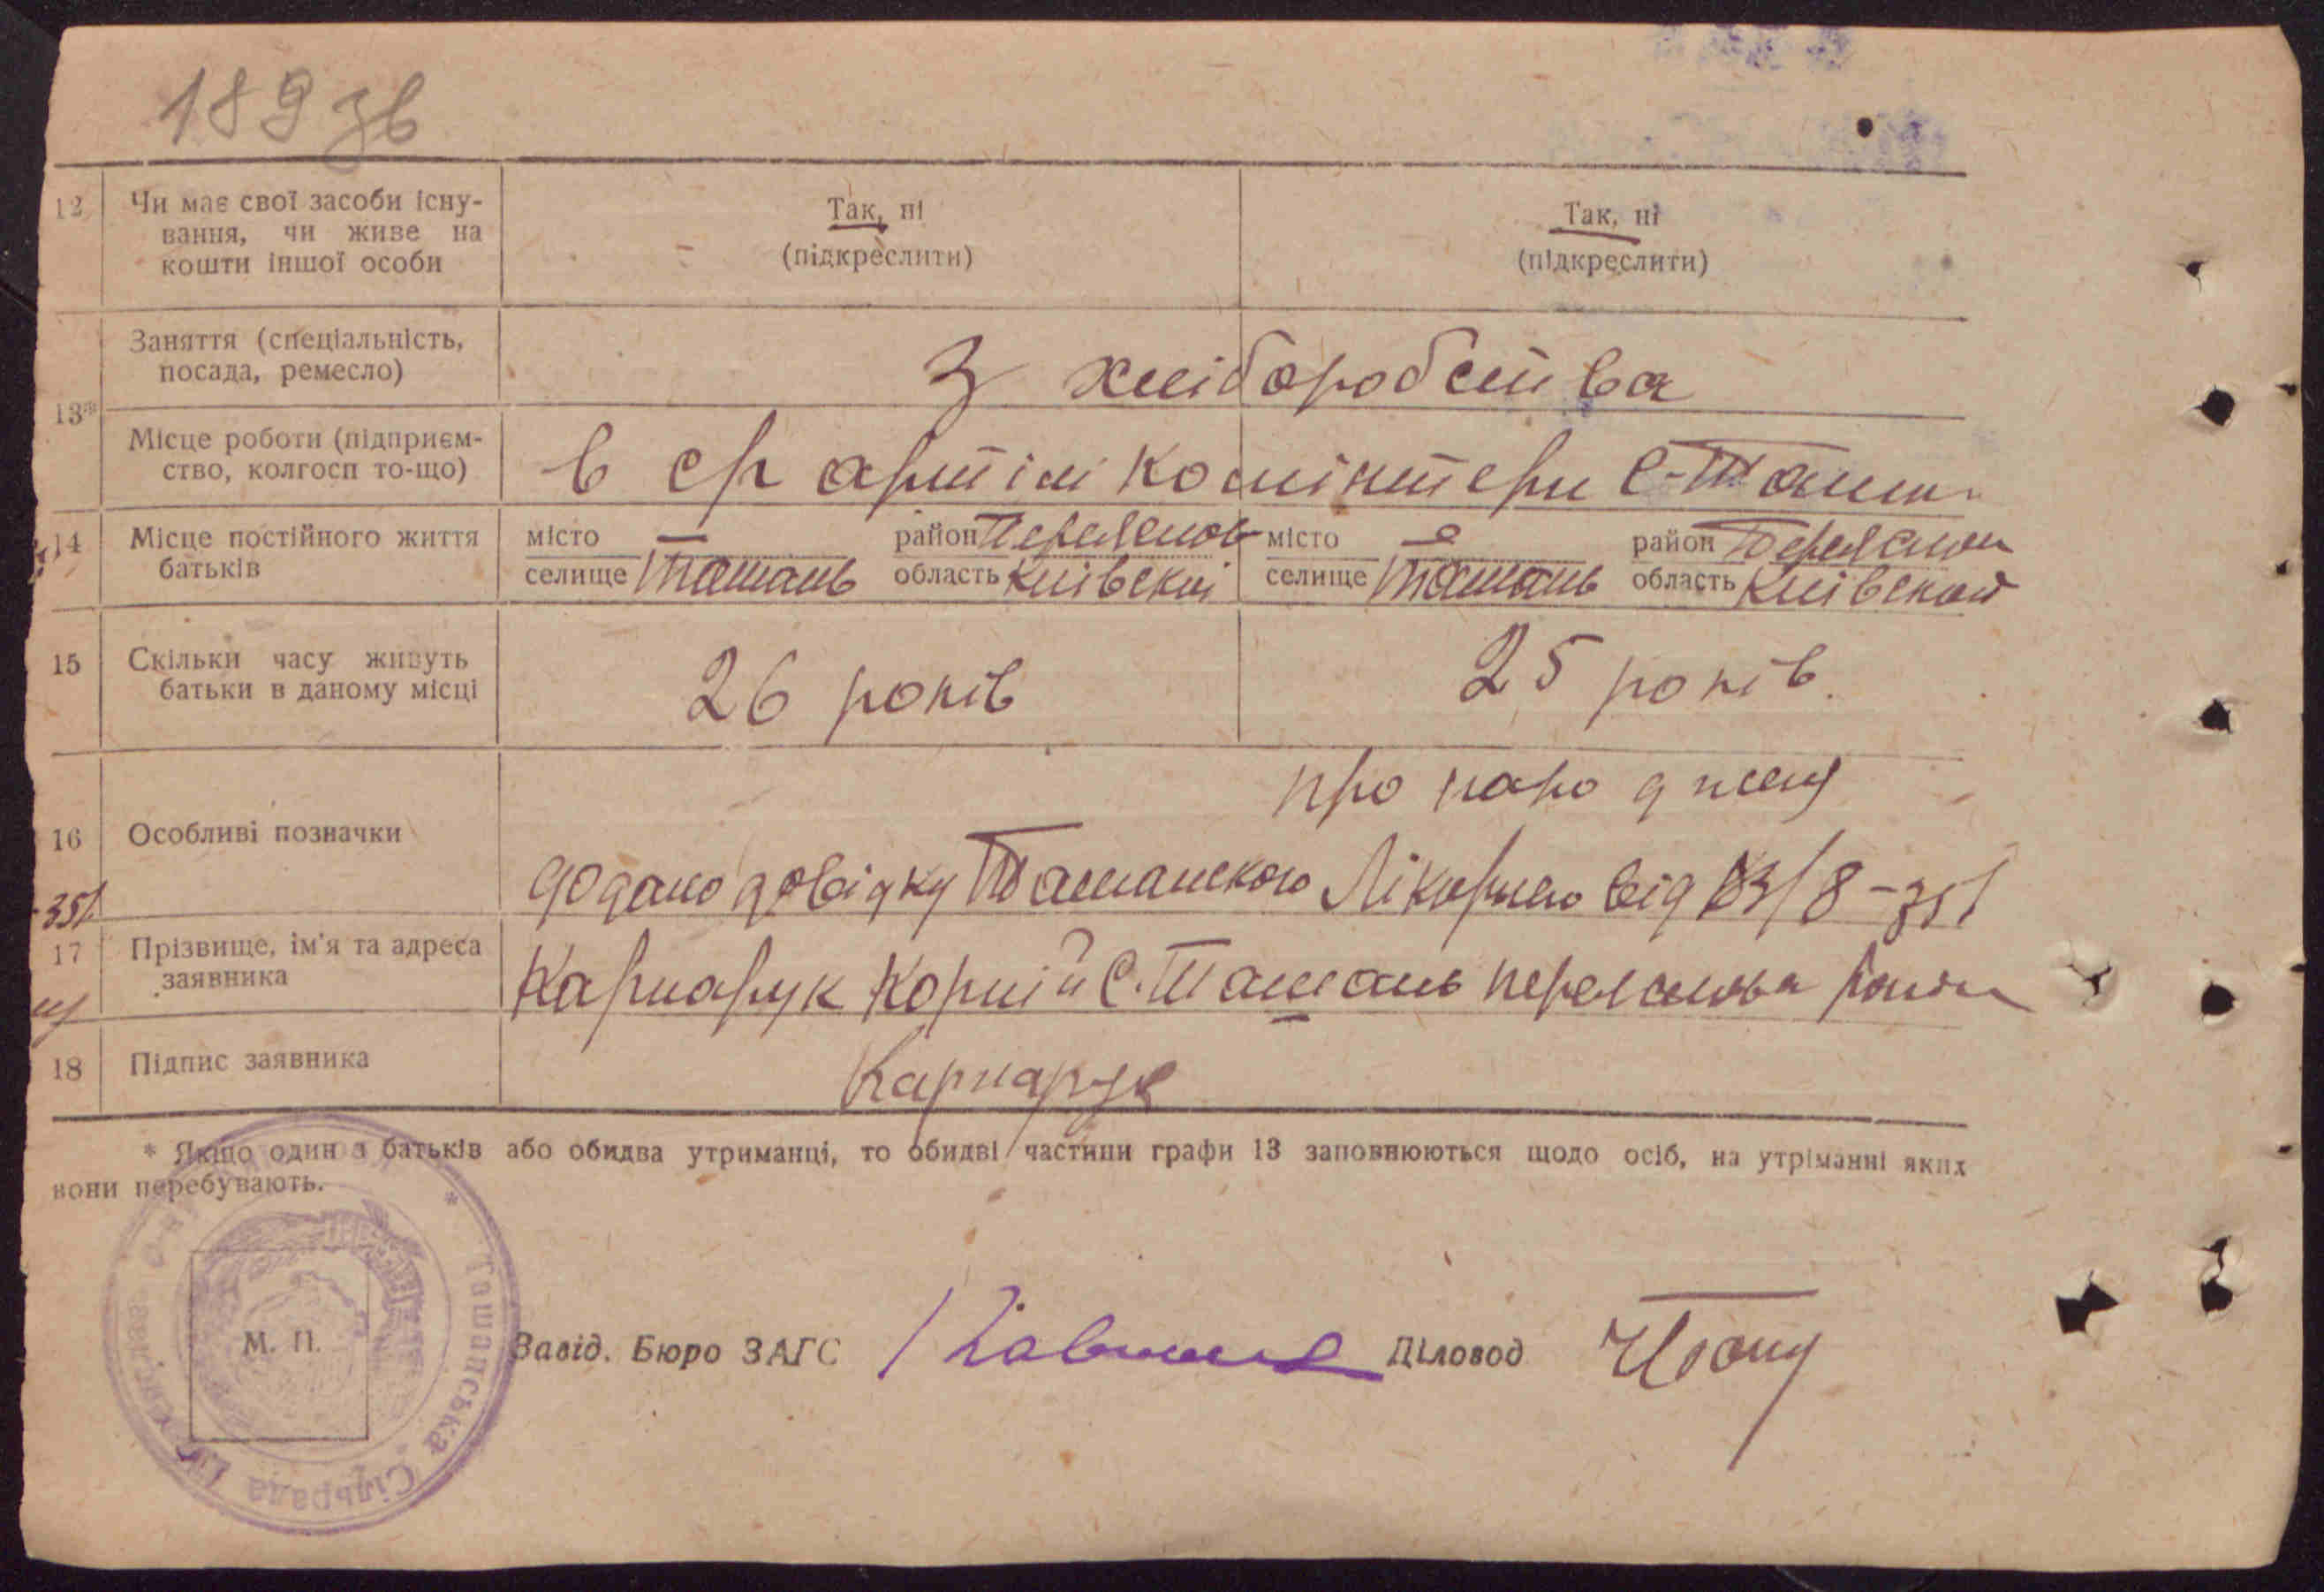 189 зв
12 Чи має свої засоби існу-
вання, чи живе на
кошти іншої особи
Так, ні
(підкреслити)
Так, ні
(підкреслити)
13*
Заняття (спеціальність,
посада, ремесло)
З хліборобства
Місце роботи (підприєм-
ство, колгосп то-що)
в ср артілі комінтерн с-Ташан
14 Місце постійного життя
батьків
місто — район Переяслов
селище Ташань область Київскій
місто район Переяслов
селище Ташань область Київской
15 Скільки часу живуть
батьки в даному місці
26 років
25 років.
16 Особливі позначки
про народжену
додано довідку Ташанською Лікарнею від 3/8-35
35
17 Прізвище, ім'я та адреса
заявника
Карнарук Корній С. Ташань переяслова району
18 Підпис заявника
Карнарук
* Якщо один з батьків або обидва утриманці, то обидві частини графи 13 заповнюються щодо осіб, на утріманні яких
вони перебувають.
Ташанська Сільрада
М. П.
Завід. Бюро ЗАГС
Діловод